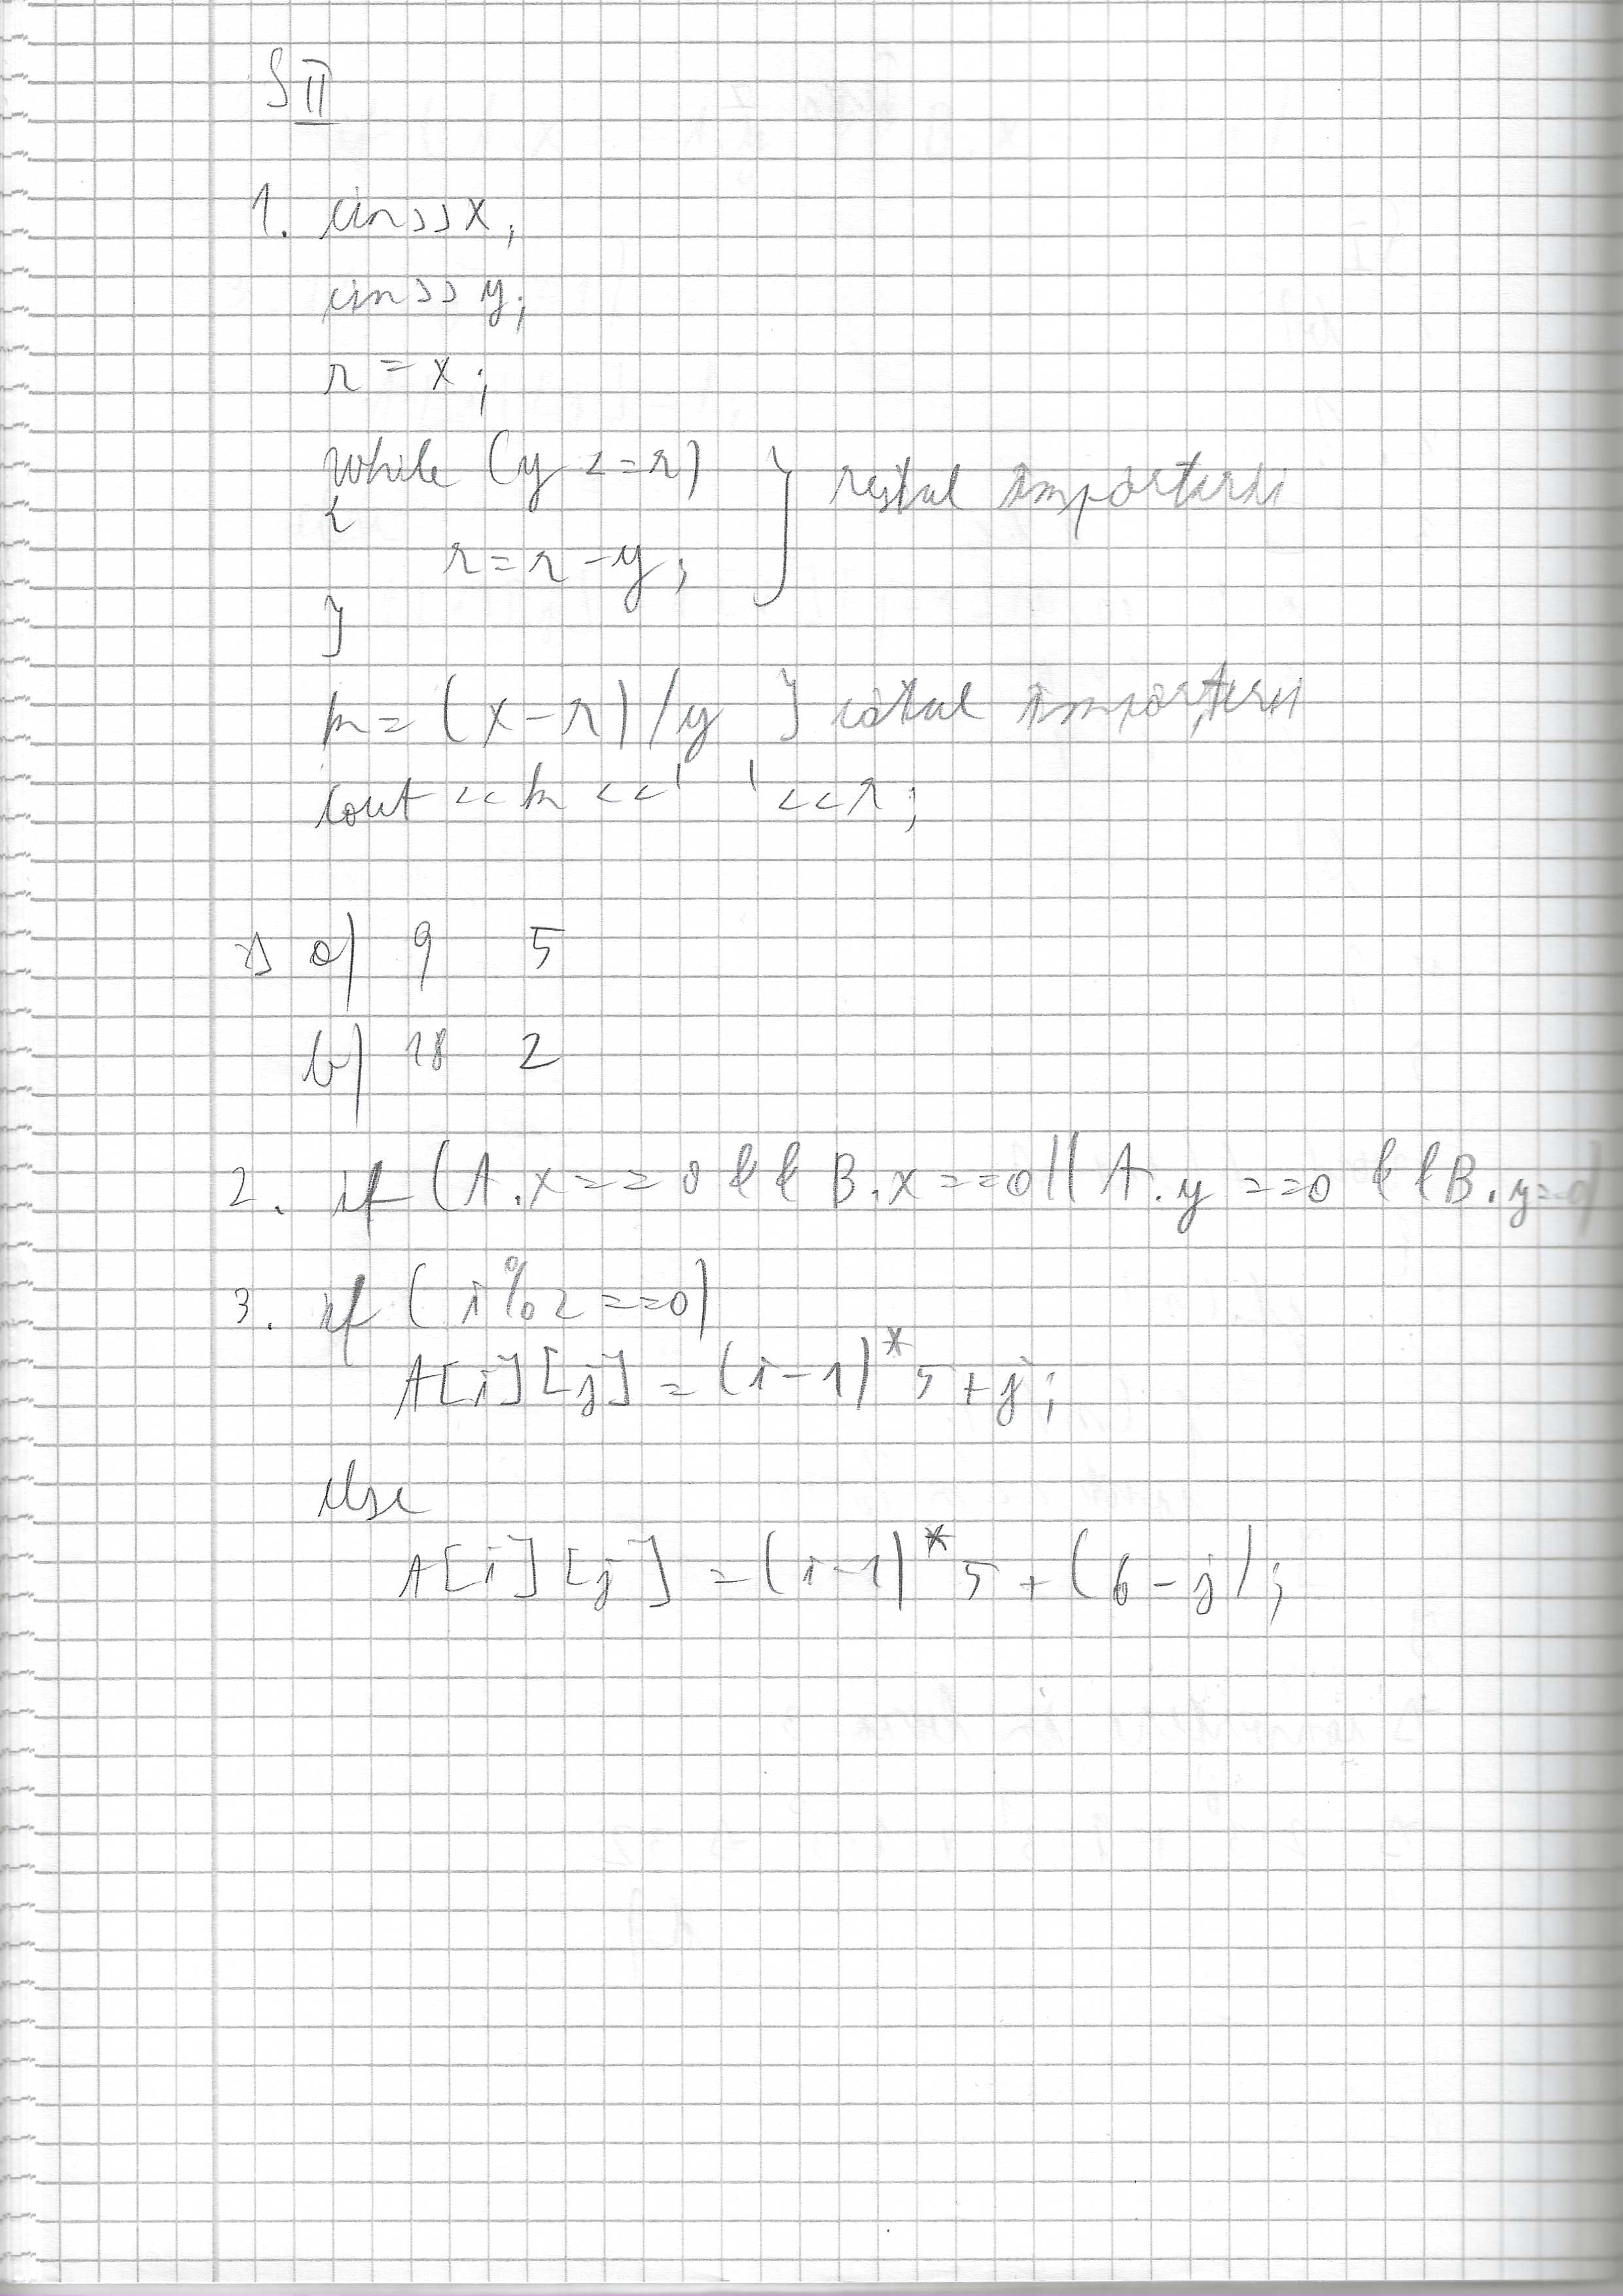 S II
1. cin>>x;
cin>>y;
r=x;
while (y<=r) } restul împărțirii
{
r=r-y;
}
n=(x-r)/y } câtul împărțirii
cout<<n<<' '<<r;
a) 9 5
b) 18 2
2. if (A.x==0&&B.x==0||A.y==0&&B.y==0)
3. if (i%2==0)
A[i][j]=(i-1)*5+j;
else
A[i][j]=(i-1)*5+(6-j);